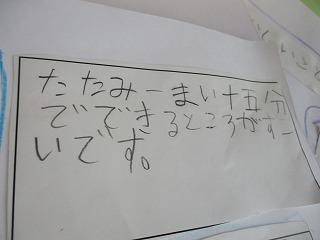 たたみ一まい十五分
でできるところがすご
いです。